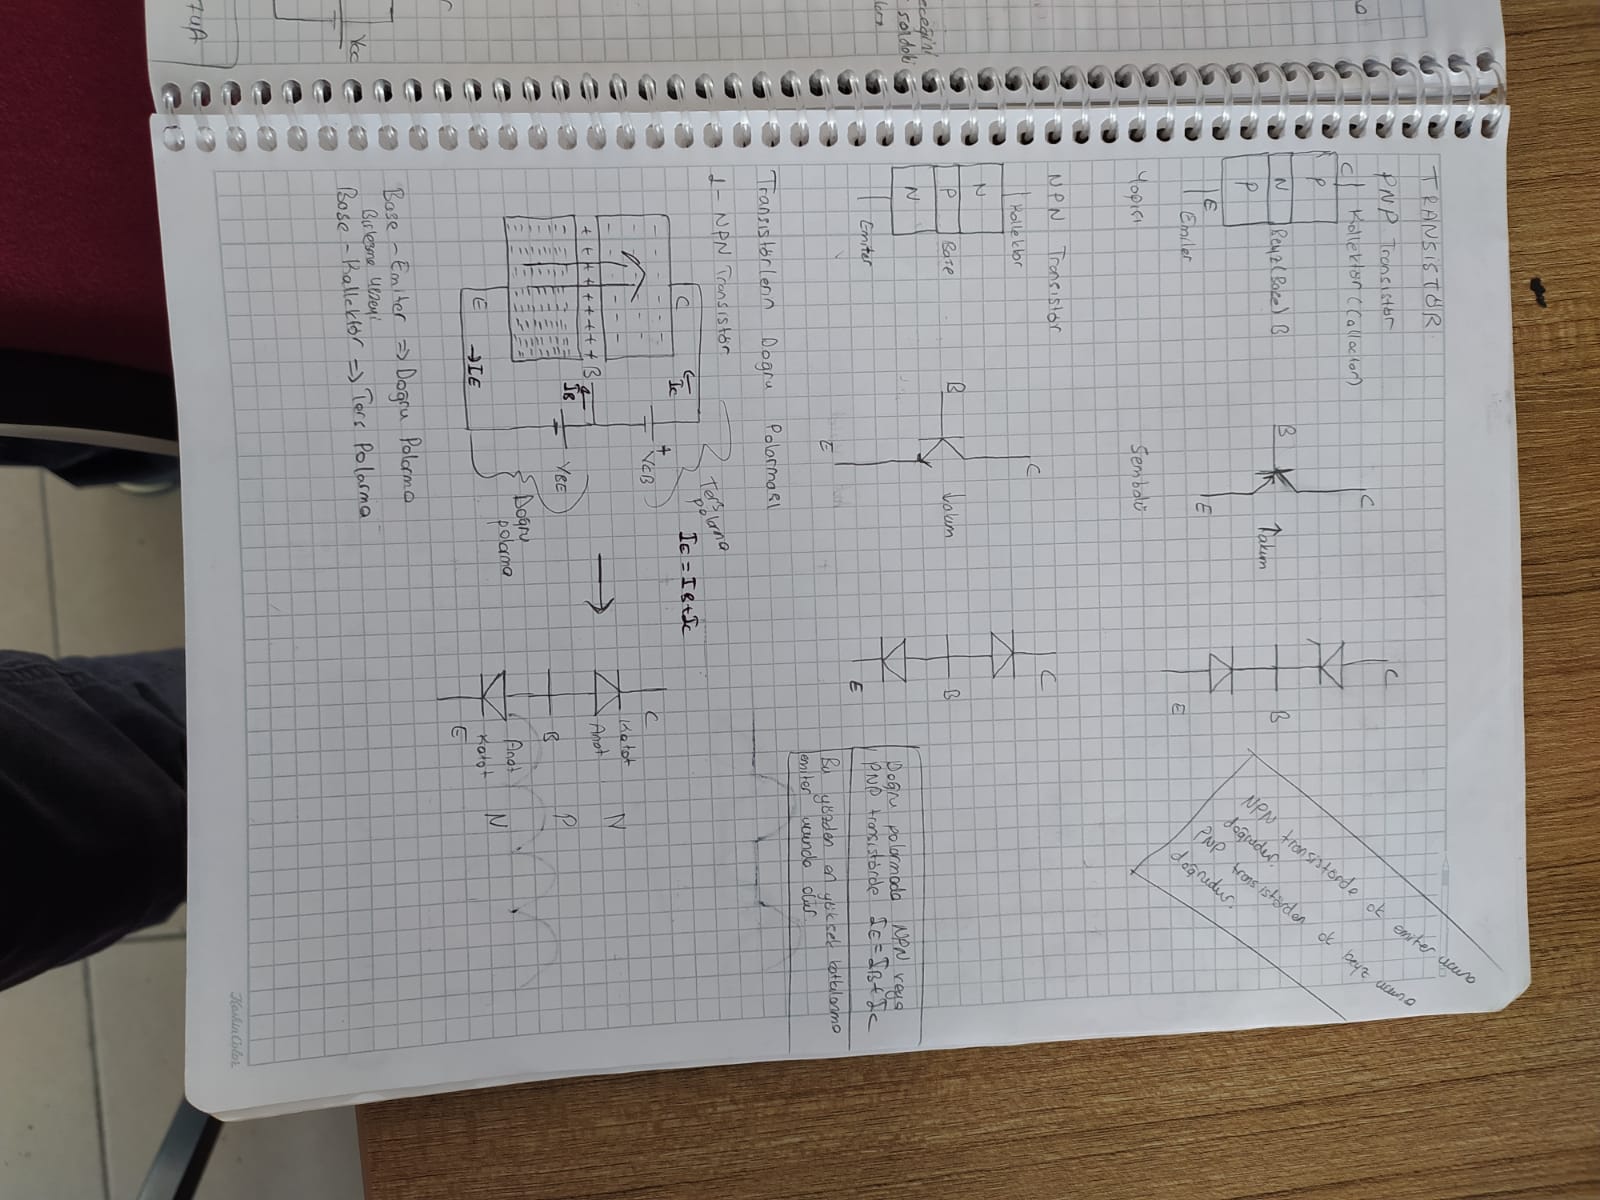 TRANSISTÖR
PNP Transistör
C Kollektör (Collactor)
P
N Beyz (Base) B
P
E
Emiter
Yapısı
C
B
↑akım
E
Sembolü
C
B
E
NPN transistörde ok emiter ucuna
doğrudur.
PNP transistörden ok beyz ucuna
doğrudur.
NPN Transistör
Kollektör
N
P Base
N
Emiter
C
B
↓akım
E
C
B
E
Doğru polarmada NPN veya
PNP transistörde IE=IB+IC
Bu yüzden en yüksek katkılanma
emiter ucunda olur.
Transistörlerin Doğru Polarması
1- NPN Transistör
Ters
polarma
IE = IB+IC
C
IC
+
VCB
+ + + + + + + + + B
IB
VBE
Doğru
polarma
E → IE
C
Katot N
Anot
B P
Anot
Katot N
E
Base - Emiter => Doğru Polarma
Birleşme Yüzeyi
Base - Kallektör => Ters Polarma
KeskinColor
eceğini
soldaki
VCC
7uA